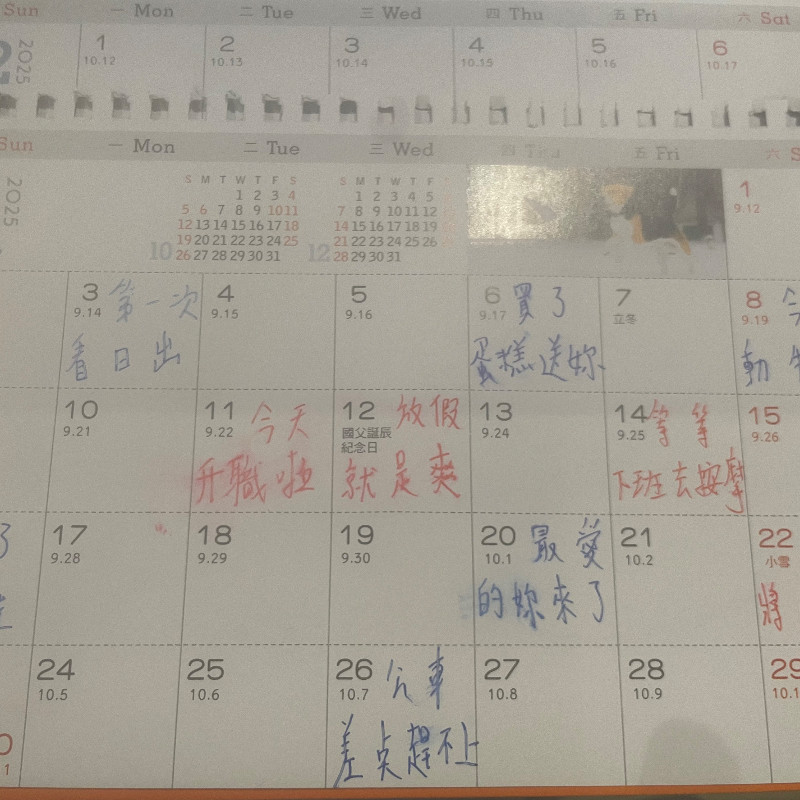 Sun 一 Mon 二 Tue 三 Wed 四 Thu 五 Fri 六 Sat
2025 1 2 3 4 5 6
10.12 10.13 10.14 10.15 10.16 10.17
Sun 一 Mon 二 Tue 三 Wed 四 Thu 五 Fri 六
2025
S M T W T F S
1 2 3 4
5 6 7 8 9 10 11
12 13 14 15 16 17 18
19 20 21 22 23 24 25
10 26 27 28 29 30 31
S M T W T F
1 2 3 4 5
7 8 9 10 11 12
14 15 16 17 18 19
21 22 23 24 25 26
12 28 29 30 31
1
9.12
3 第一次
9.14
看日出
4
9.15
5
9.16
6 買了
9.17
蛋糕送妳
7
立冬
8 今
9.19
動
10
9.21
11 今天
9.22
升職啦
12 放假
國父誕辰
紀念日
就是爽
13
9.24
14 等等
9.25
下班去按摩
15
9.26
17
9.28
18
9.29
19
9.30
20 最愛
10.1
的妳來了
21
10.2
22
小雪
將
24
10.5
25
10.6
26 公車
10.7
差点趕不上
27
10.8
28
10.9
29